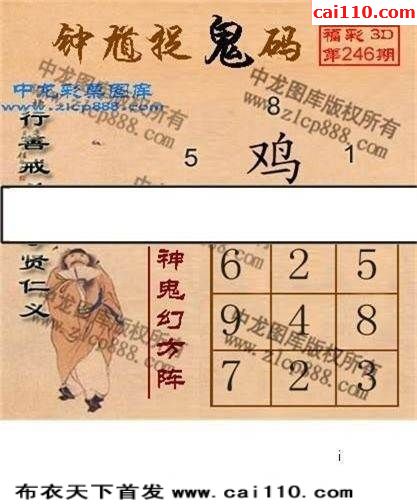 cai110.com
钟馗捉鬼码
福彩3D
第246期
中龙彩票图库
www.zlcp888.com
中龙图库版权所有
www.zlcp888.com
8
5 鸡 1
行善戒
贤仁义
神鬼幻方阵
6 2 5
9 4 8
7 2 3
中龙图库版权所有
www.zlcp888.com
i
布衣天下首发 www.cai110.com